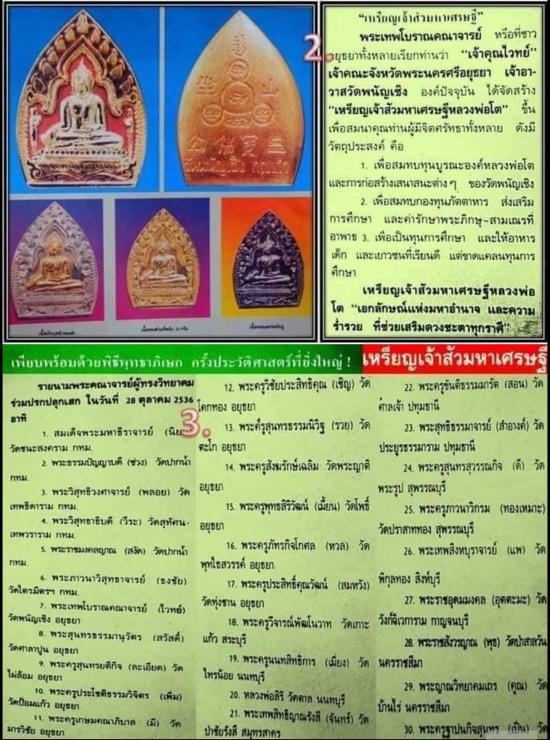 2.
"เหรียญเจ้าสัวมหาเศรษฐี"
พระเทพโบราณคณาจารย์ หรือที่ชาว
อยุธยาทั้งหลายเรียกท่านว่า "เจ้าคุณไวทย์"
เจ้าคณะจังหวัดพระนครศรีอยุธยา เจ้าอา-
วาสวัดพนัญเชิง องค์ปัจจุบัน ได้จัดสร้าง
"เหรียญเจ้าสัวมหาเศรษฐีหลวงพ่อโต" ขึ้น
เพื่อสมนาคุณท่านผู้มีจิตศรัทธาทั้งหลาย ดังมี
วัตถุประสงค์ คือ
1. เพื่อสมทบทุนบูรณะองค์หลวงพ่อโต
และการก่อสร้างเสนาสนะต่างๆ ของวัดพนัญเชิง
2. เพื่อสมทบกองทุนภัตตาหาร ส่งเสริม
การศึกษา และค่ารักษาพระภิกษุ-สามเณรที่
อาพาธ 3. เพื่อเป็นทุนการศึกษา และให้อาหาร
เด็ก และเยาวชนที่เรียนดี แต่ขาดแคลนทุนการ
ศึกษา
เหรียญเจ้าสัวมหาเศรษฐีหลวงพ่อ
โต "เอกลักษณ์แห่งมหาอำนาจ และความ
ร่ำรวย ที่ช่วยเสริมดวงชะตาทุกราศี"
เพียบพร้อมด้วยพิธีพุทธาภิเษก ครั้งประวัติศาสตร์ที่ยิ่งใหญ่ !
เหรียญเจ้าสัวมหาเศรษฐี
3.
รายนามพระคณาจารย์ผู้ทรงวิทยาคม
ร่วมปรกปลุกเสก ในวันที่ 28 ตุลาคม 2536
อาทิ
1. สมเด็จพระมหาธีราจารย์ (นิยม)
วัดชนะสงคราม กทม.
2. พระธรรมปัญญาบดี (ช่วง) วัดปากน้ำ
กทม.
3. พระวิสุทธิวงศาจารย์ (พลอย) วัด
เทพธิดาราม กทม.
4. พระวิสุทธาธิบดี (วีระ) วัดสุทัศน-
เทพวราราม กทม.
5. พระราชมงคลญาณ (สงัด) วัดปากน้ำ
กทม.
6. พระภาวนาวิสุทธาจารย์ (ธงชัย)
วัดไตรมิตรฯ กทม.
7. พระเทพโบราณคณาจารย์ (ไวทย์)
วัดพนัญเชิง อยุธยา
8. พระสุนทรธรรมานุวัตร (สวัสดิ์)
วัดศาลาปูน อยุธยา
9. พระครูสุนทรยติกิจ (ละเอียด) วัด
ไผ่ล้อม อยุธยา
10. พระครูประโชติธรรมวิจิตร (เพิ่ม)
วัดป้อมแก้ว อยุธยา
11. พระครูเกษมคณาภิบาล (มี) วัด
มารวิชัย อยุธยา
12. พระครูวิชัยประสิทธิคุณ (เชิญ) วัด
โคกทอง อยุธยา
13. พระครูสุนทรธรรมนิวิฐ (รวย) วัด
ตะโก อยุธยา
14. พระครูสังฆรักษ์เฉลิม วัดพระญาติ
อยุธยา
15. พระครูพุทธสิริวัฒน์ (เมี้ยน) วัดโพธิ์
อยุธยา
16. พระครูภัทรกิจโกศล (หวล) วัด
พุทไธสวรรค์ อยุธยา
17. พระครูประสิทธิ์คุณวัฒน์ (สมหวัง)
วัดทุ่งชาน อยุธยา
18. พระครูวิจารณ์พัฒโนวาท วัดเกาะ
แก้ว สระบุรี
19. พระครูนนทสิทธิการ (เมี้ยง) วัด
ไทรน้อย นนทบุรี
20. หลวงพ่อสิริ วัดตาล นนทบุรี
21. พระเทพสิทธิญาณรังสี (จันทร์) วัด
ป่าชัยรังสี สมุทรสาคร
22. พระครูขันติธรรมมารัต (สอน) วัด
ศาลเจ้า ปทุมธานี
23. พระสุทธิธรรมาจารย์ (สำอางค์) วัด
ประยูรธรรมาราม ปทุมธานี
24. พระครูสุนทรสุวรรณกิจ (ดี) วัด
พระรูป สุพรรณบุรี
25. พระครูภาวนาวิกรม (ทองเหมาะ)
วัดปราสาททอง สุพรรณบุรี
26. พระเทพสิงหบุราจารย์ (แพ) วัด
พิกุลทอง สิงห์บุรี
27. พระราชอุดมมงคล (อุตตะมะ) วัด
วังก์วิเวการาม กาญจนบุรี
28. พระราชสังวรญาณ (พุธ) วัดป่าสาลวัน
นครราชสีมา
29. พระญาณวิทยาคมเถร (คูณ) วัด
บ้านไร่ นครราชสีมา
30. พระครูฐาปนกิจสุนทร (เปิ่น) วัด